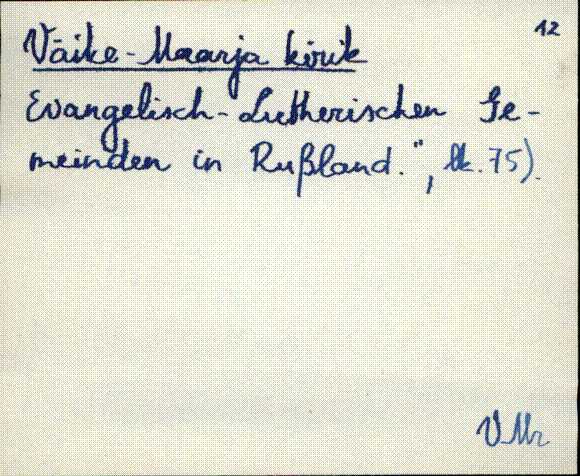 12
Väike-Maarja kirik
Evangelisch-Lutherischen Ge-
meinden in Rußland.", lk. 75).
VMr